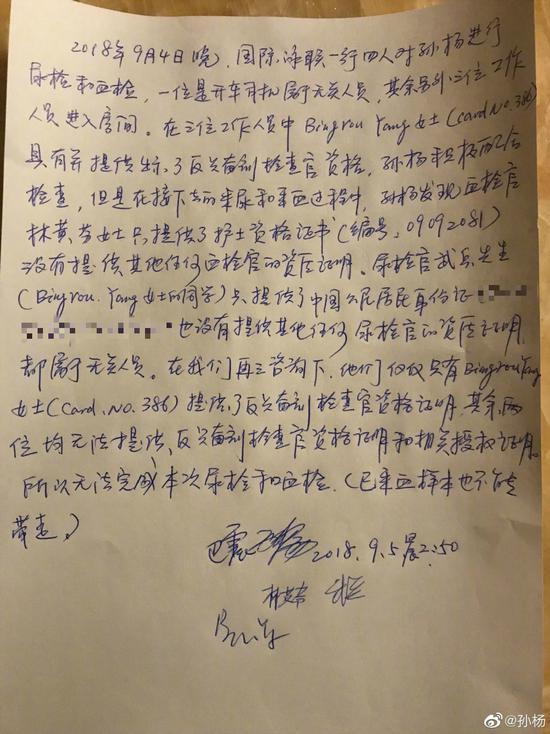 2018年9月4日晚，国际泳联一行四人对孙杨进行
尿检和血检，一位是开车司机属于无关人员，其余另外三位工作
人员进入房间。在三位工作人员中Bingrou Yang女士(card.No.386)
具有并提供出示了反兴奋剂检查官资格，孙杨积极配合
检查，但是在接下去的采尿和采血过程中，孙杨发现血检官
林 女士只提供了护士资格证书(编号：09092081)
没有提供其他任何血检官的资历证明。尿检官武 先生
(Bingrou.Yang女士的同学)只提供了中国公民居民身份证
也没有提供其他任何尿检官的资历证明
都属于无关人员。在我们再三咨询下，他们仅仅只有Bingrou Yang
女士(Card.No.386)提供了反兴奋剂检查官资格证明，其余两
位均无法提供反兴奋剂检查官资格证明和相关授权证明。
所以无法完成本次尿检和血检.(已采血样本也不能
带走。)
2018.9.5晨2:50
@孙杨